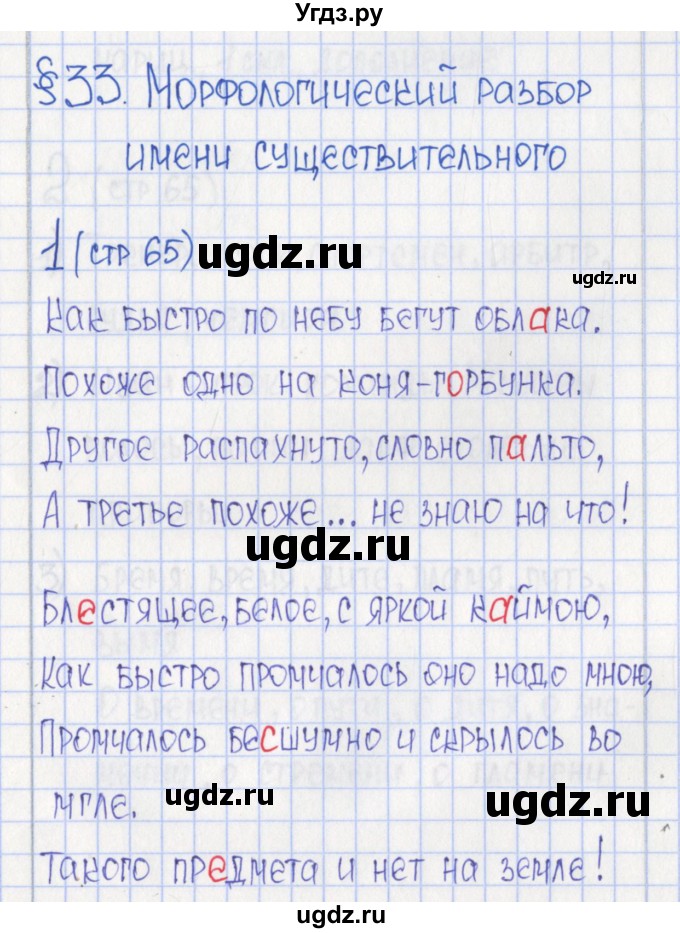 Угдз.ру
§33. Морфологический разбор
имени существительного
1 (стр 65) ugdz.ru
ugdz.ru
Как быстро по небу бегут облака.
Похоже одно на коня-горбунка.
Другое распахнуто, словно пальто,
А третье похоже... не знаю на что!
ugdz.ru
Блестящее, белое, с яркой каймою,
Как быстро промчалось оно надо мною,
Промчалось бесшумно и скрылось во
мгле.
ugdz.ru
ugdz.ru
Такого предмета и нет на земле!
ugdz.ru